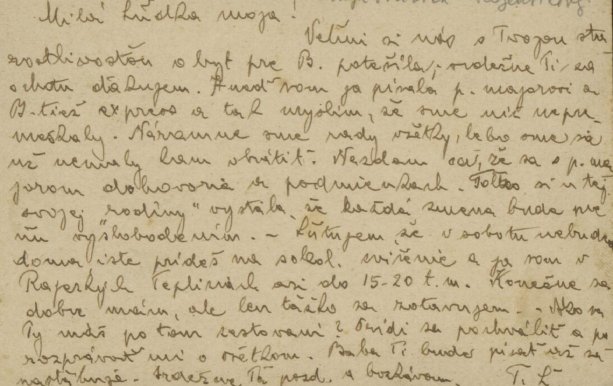 Milá Ľudka moja!
Veľmi si nás s Tvojou sta
rostlivosťou o byt pre B. potešila; srdečne Ti za
ochotu ďakujem. Hneď som ja písala p. majorovi a
B. tiež expres a tak myslím, že sme nič nepre
meškaly. Náramne sme rady všetky, lebo sme sa
už nemaly kam obrátiť. Nazdám sa, že sa s p. ma
jorom dohovoria v podmienkach. Toľko si v tej
svojej „rodiny" vystála, že každá zmena bude pre
ňu vyslobodením. – Ľutujem, že v sobotu nebudeš
doma iste prídeš na sokol. cvičenie a ja som v
Rajeckých Tepliciach asi do 15-20 t. m. Konečne sa
dobre mám, ale len ťažko sa zotavujem. – Ako sa
Ty máš po tom cestovaní? Prídi sa pochváliť a po
rozprávať mi o všetkom. Baba Ti bude písať už sa
Srdečne Ťa pozd. a bozkávam